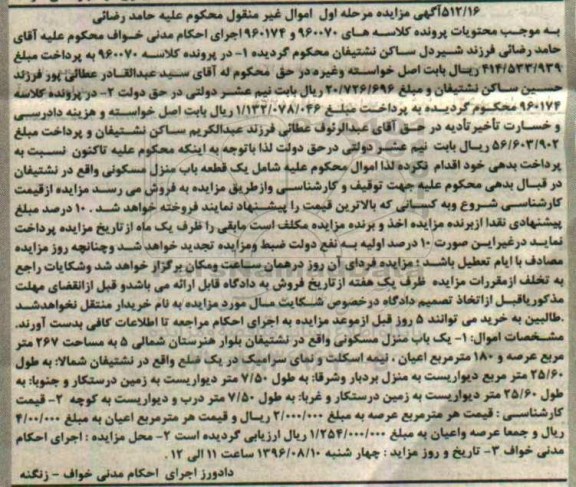 ۵۱۲/۱۶آگهی مزایده مرحله اول اموال غیر منقول محکوم علیه حامد رضائی
به موجب محتویات پرونده کلاسه های ۹۶۰۰۷۰ و ۹۶۰۱۷۴ اجرای احکام مدنی خواف محکوم علیه آقای
حامد رضائی فرزند شیردل ساکن نشتیفان محکوم گردیده ۱- در پرونده کلاسه ۹۶۰۰۷۰ به پرداخت مبلغ
۴۱۴/۵۳۳/۹۳۹ ریال بابت اصل خواسته وغیره در حق محکوم له آقای سید عبدالقادر عطائی پور فرزند
حسین ساکن نشتیفان و مبلغ ۲۰/۷۲۶/۶۹۶ ریال بابت نیم عشر دولتی در حق دولت ۲- در پرونده کلاسه
۹۶۰۱۷۴ محکوم گردیده به پرداخت مبلغ ۱/۱۳۲/۰۷۸/۰۴۶ ریال بابت اصل خواسته و هزینه دادرسی
و خسارت تأخیر تأدیه در حق آقای عبدالرئوف عطائی فرزند عبدالکریم ساکن نشتیفان و پرداخت مبلغ
۵۶/۶۰۳/۹۰۲ ریال بابت نیم عشر دولتی درحق دولت لذا باتوجه به اینکه محکوم علیه تاکنون نسبت به
پرداخت بدهی خود اقدام نکرده لذا اموال محکوم علیه شامل یک قطعه باب منزل مسکونی واقع در نشتیفان
در قبال بدهی محکوم علیه جهت توقیف و کارشناسی وازطریق مزایده به فروش می رسد مزایده ازقیمت
کارشناسی شروع وبه کسانی که بالاترین قیمت را پیشنهاد نمایند فروخته خواهد شد . ۱۰ درصد مبلغ
پیشنهادی نقدا ازبرنده مزایده اخذ و برنده مزایده مکلف است مابقی را ظرف یک ماه از تاریخ مزایده پرداخت
نماید درغیراین صورت ۱۰ درصد اولیه به نفع دولت ضبط ومزایده تجدید خواهد شد وچنانچه روز مزایده
مصادف با ایام تعطیل باشد ؛ مزایده فردای آن روز درهمان ساعت ومکان برگزار خواهد شد وشکایات راجع
به تخلف ازمقررات مزایده ظرف یک هفته از تاریخ فروش به دادگاه قابل ارائه می باشدو قبل ازانقضای مهلت
مذکوریاقبل ازاتخاذ تصمیم دادگاه درخصوص شکایت مال مورد مزایده به نام خریدار منتقل نخواهدشد
.طالبین به خرید می توانند ۵ روز قبل ازموعد مزایده به اجرای احکام مراجعه تا اطلاعات کافی بدست آورند.
مشخصات اموال: ۱- یک باب منزل مسکونی واقع در نشتیفان بلوار هنرستان شمالی ۵ به مساحت ۲۶۷ متر
مربع عرصه و ۱۸۰ مترمربع اعیان ، نیمه اسکلت و نمای سرامیک در یک ضلع واقع در نشتیفان شمالا: به طول
۲۵/۶۰ متر مربع دیواریست به منزل بردبار وشرقا: به طول ۷/۵۰ متر دیواریست به زمین درستکار و جنوبا: به
طول ۲۵/۶۰ متر دیواریست به زمین درستکار و غربا: به طول ۷/۵۰ متر درب و دیواریست به کوچه ۲- قیمت
کارشناسی : قیمت هر مترمربع عرصه به مبلغ ۲/۰۰۰/۰۰۰ ریال و قیمت هر مترمربع اعیان به مبلغ ۴/۰۰/۰۰۰
ریال و جمعا عرصه واعیان به مبلغ ۱/۲۵۴/۰۰۰/۰۰۰ ریال ارزیابی گردیده است ۲- محل مزایده : اجرای احکام
مدنی خواف ۳- تاریخ و روز مزاید : چهار شنبه ۱۳۹۶/۰۸/۱۰ ساعت ۱۱ الی ۱۲ .
دادورز اجرای احکام مدنی خواف - زنگنه